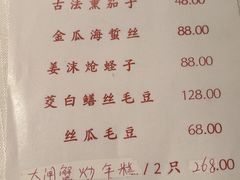 古法熏茄子 48.00
金瓜海蜇丝 88.00
姜沫炝蛏子 88.00
茭白鳝丝毛豆 128.00
丝瓜毛豆 68.00
大闸蟹炒年糕 12只 268.00